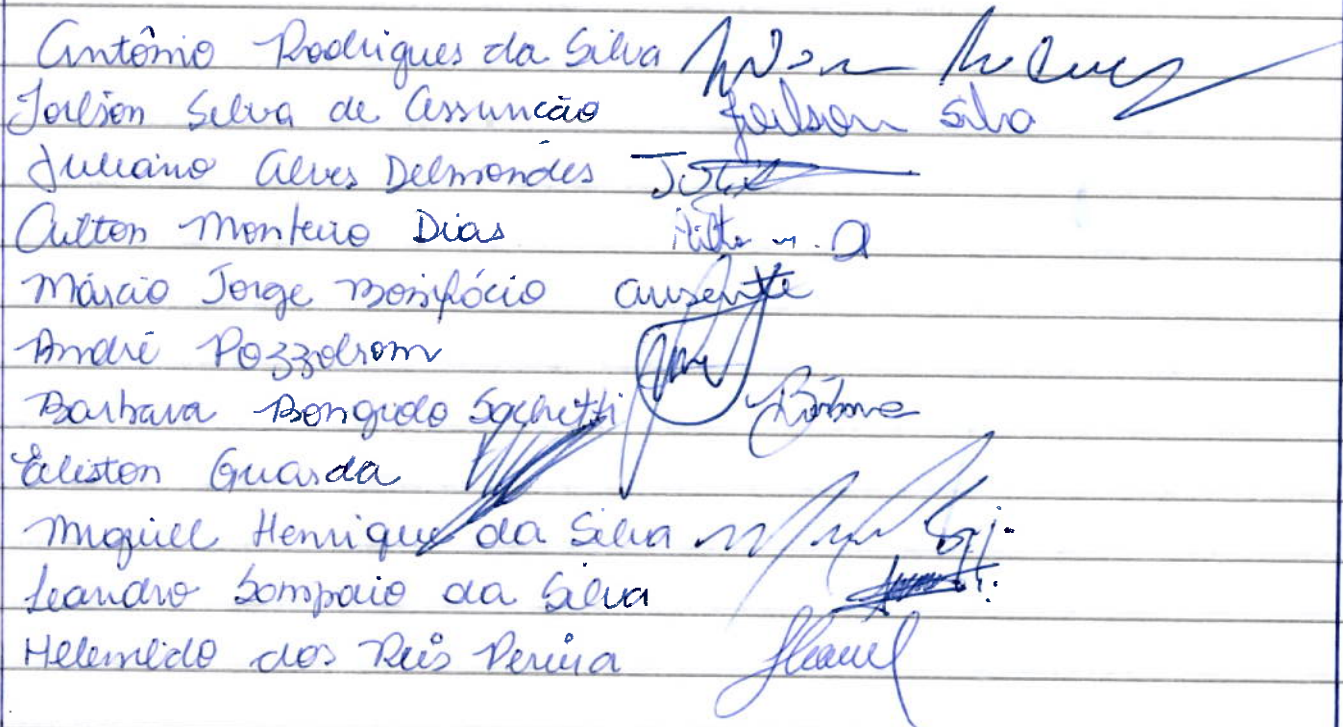 Antônio Rodrigues da Silva
Joilson Selva de Assuncão Joilson Silva
Juliano Alves Delmondes
Ailton Monteiro Dias
Márcio Jorge Bonifácio ausente
André Pozzobom
Barbara Bongiolo Sachetti Bárbara
Eliston Guarda
Miguell Henrique da Silva
Leandro Sampaio da Silva
Helenildo dos Reis Pereira